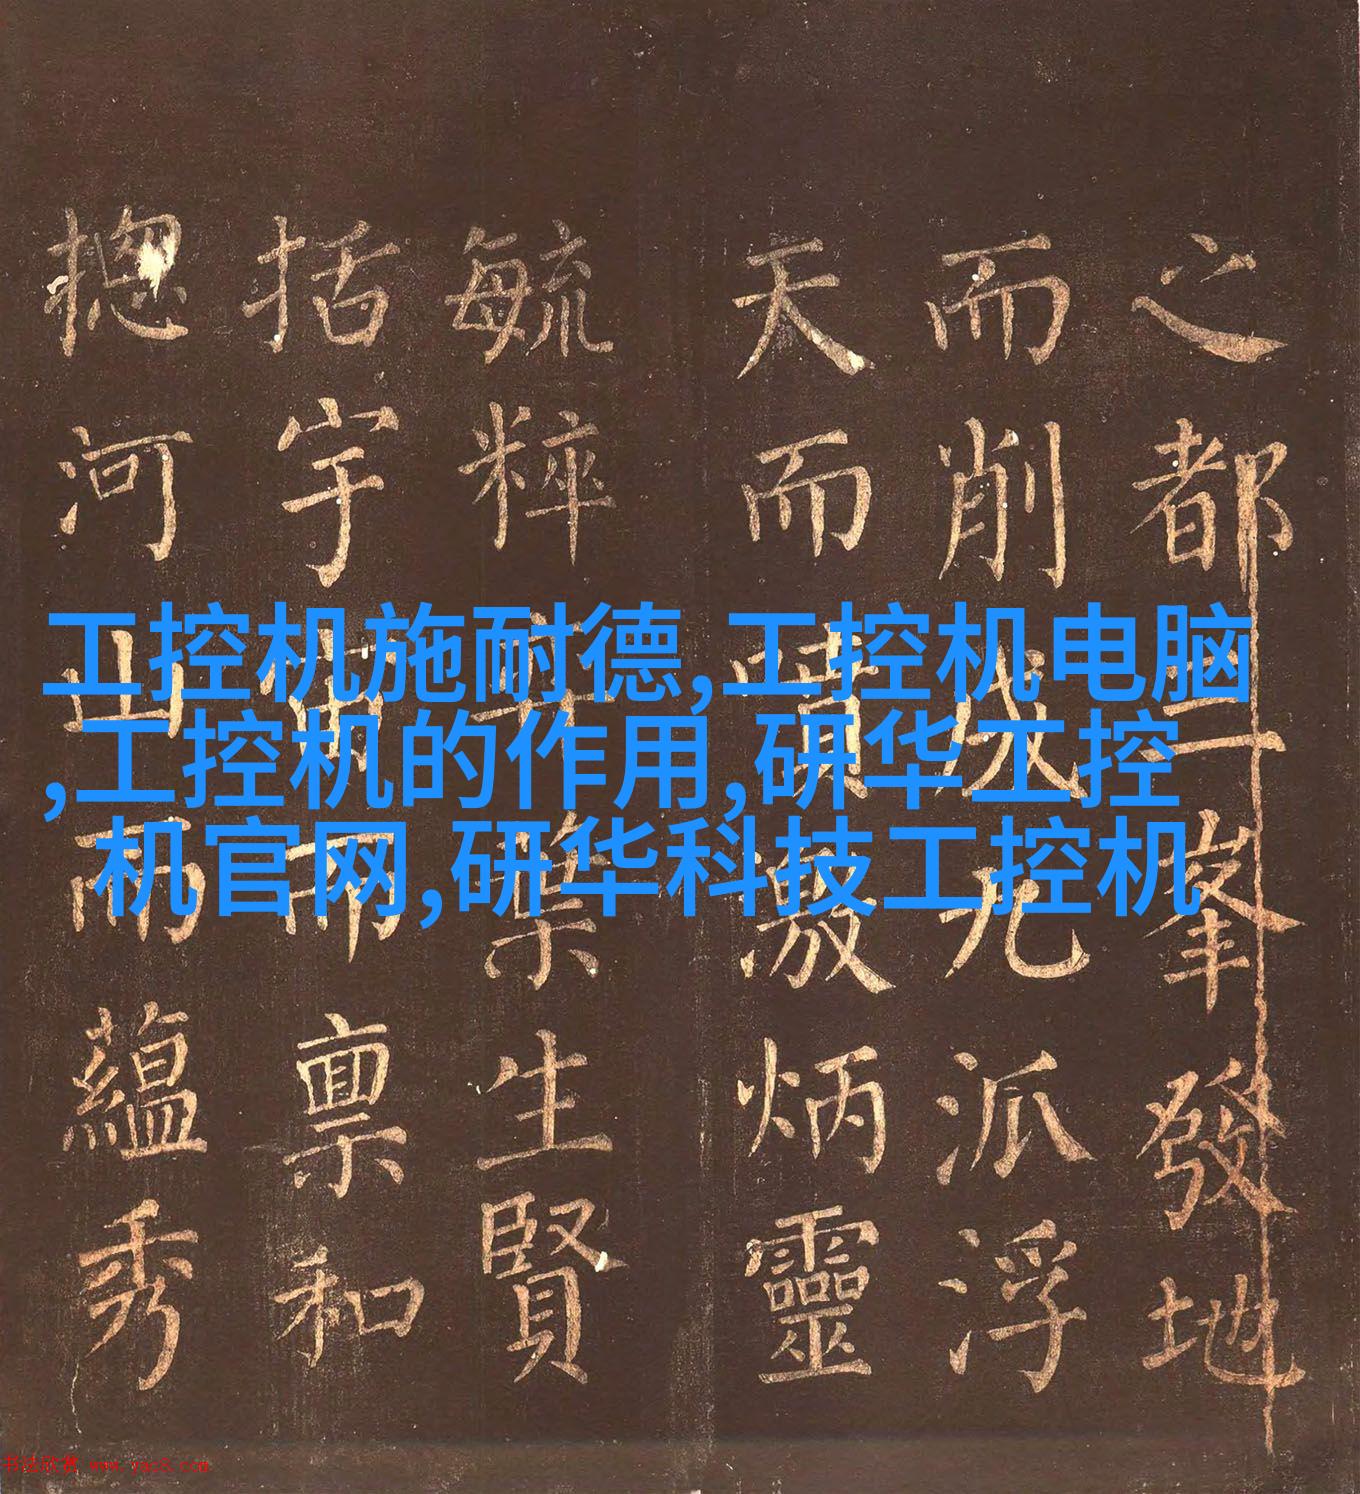 之都二峯發地
而削成九派浮
天而激炳靈
毓粹葉生賢
括宇宙而禀和
揔河山而蘊秀
工控机施耐德,工控机电脑
,工控机的作用,研华工控
机官网,研华科技工控机
书法欣赏 www.yac8.com